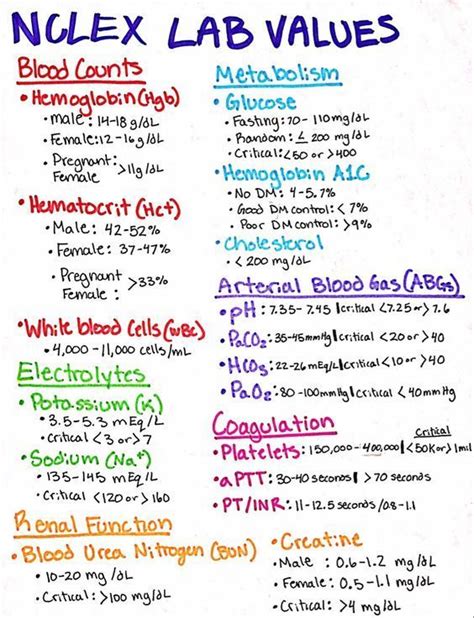 NCLEX LAB VALUES
Blood Counts
• Hemoglobin (Hgb)
• male: 14-18 g/dL
• Female: 12-16 g/dL
• Pregnant Female >11g/dL
• Hematocrit (Hct)
• Male: 42-52%
• Female: 37-47%
• Pregnant Female: >33%
• White blood Cells (WBC)
• 4,000-11,000 cells/mL
Electrolytes
• Potassium (K)
• 3.5-5.3 mEq/L
• Critical <3 or >7
• Sodium (Na+)
• 135-145 mEq/L
• Critical <120 or >160
Renal Function
• Blood Urea Nitrogen (BUN)
• 10-20 mg/dL
• Critical: >100 mg/dL
Metabolism
• Glucose
• Fasting: 70-110mg/dL
• Random: ≤ 200 mg/dL
• Critical: <50 or >400
• Hemoglobin A1C
• No DM: 4-5.7%
• Good DM control: < 7%
• Poor DM control: >9%
• Cholesterol
• < 200 mg/dL
Arterial Blood Gas (ABGs)
• pH: 7.35-7.45 | critical <7.25 or > 7.6
• PaCO2: 35-45mmHg | critical <20 or >40
• HCO3: 22-26 mEq/L | critical <10 or >40
• PaO2: 80-100mmHg | critical < 40mmHg
Coagulation
Critical
• Platelets: 150,000-400,000 | <50K or >1mil
• aPTT: 30-40 seconds | > 70 seconds
• PT/INR: 11-12.5 seconds/0.8-1.1
• Creatine
• Male: 0.6-1.2 mg/dL
• Female: 0.5-1.1 mg/dL
• Critical: >4 mg/dL